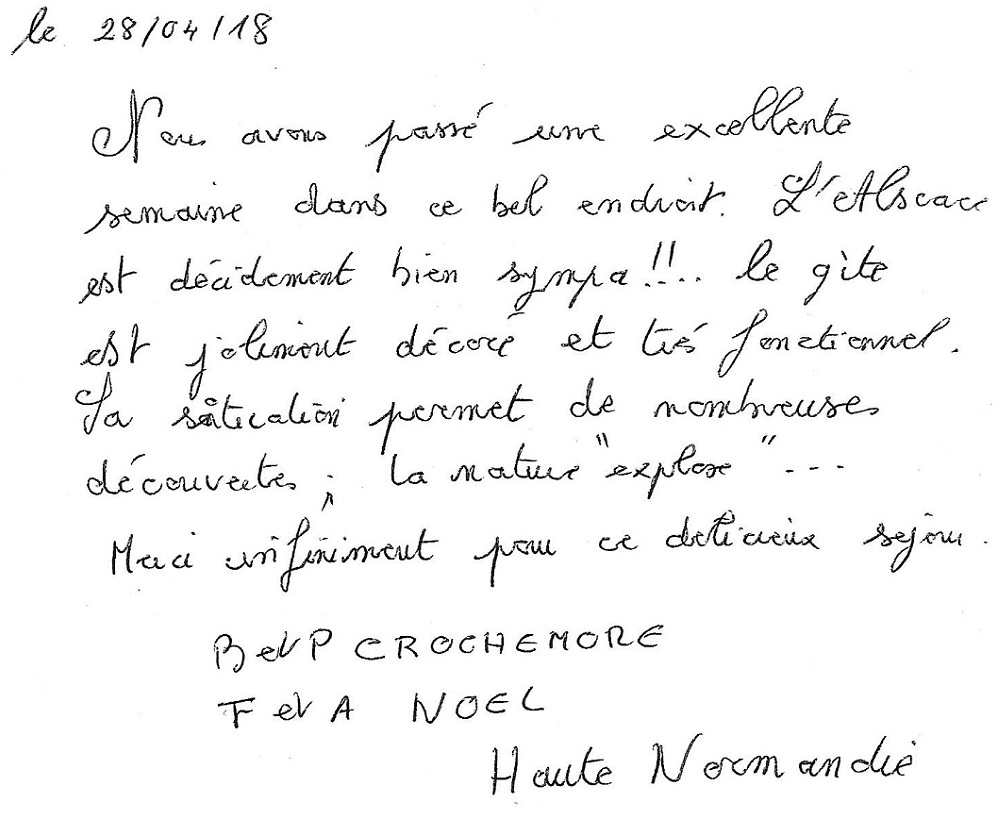 le 28/04/18
Nous avons passé une excellente
semaine dans ce bel endroit. L'Alscace
est décidément bien sympa!!.. le gîte
est joliment décoré et très fonctionnel.
Sa situation permet de nombreuses
découvertes ; la nature "explose" ...
Merci infiniment pour ce délicieux séjour.
B et P CROCHEMORE
F et A NOEL
Haute Normandie